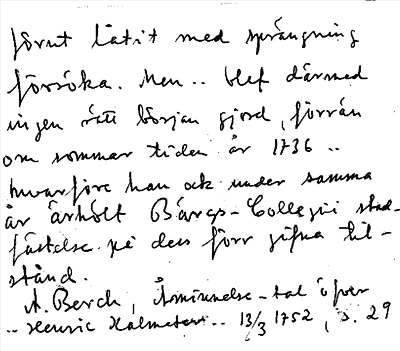 förut låtit med sprängning
försöka. Men .. blef därmed
ingen rätt början gjord, förrän
om sommar tiden år 1736 ..
hvarföre han ock under samma
år ärhölt Bärgs-Collegii stad-
fästelse på dess förr gifna till-
stånd.
A. Berch, Åminnelse-tal öfver
.. Henric Kalmeter .. 13/3 1752, s. 29